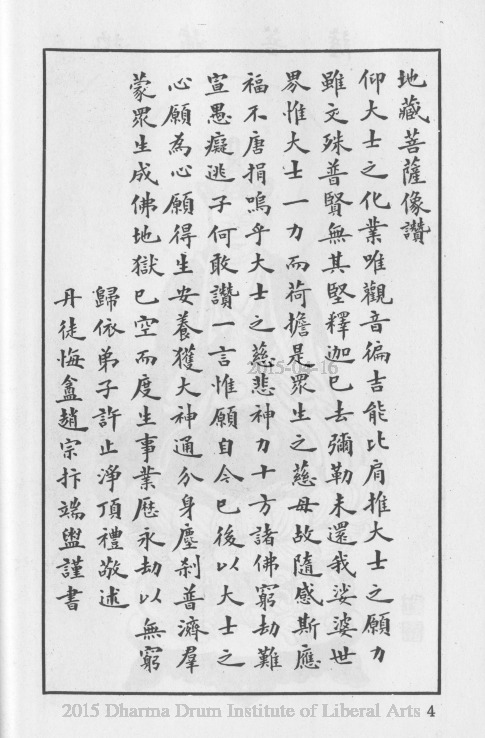 地藏菩薩像讚
仰大士之化業唯觀音徧吉能比肩推大士之願力
雖文殊普賢無其堅釋迦已去彌勒未還我娑婆世
界惟大士一力而荷擔是眾生之慈母故隨感斯應
福不唐捐嗚乎大士之慈悲神力十方諸佛窮劫難
宣愚癡逃子何敢讚一言惟願自今已後以大士之
心願為心願得生安養獲大神通分身塵剎普濟羣
蒙眾生成佛地獄已空而度生事業歷永劫以無窮
歸依弟子許止淨頂禮敬述
丹徒悔盦趙宗抃端盥謹書
2015-04-16
2015 Dharma Drum Institute of Liberal Arts 4